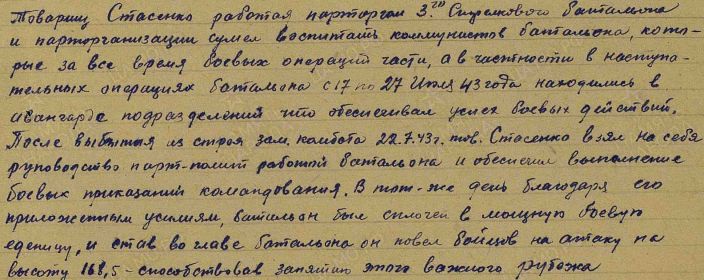 Товарищ Стасенко работая парторгом 3.го Стрелкового батальона
и парторганизации сумел воспитать коммунистов батальона, кото-
рые за все время боевых операций части, а в частности в наступа-
тельных операциях батальона с 17 по 27 Июля 43 года находились в
авангарде подразделений что обеспечивал успех боевых действий.
После выбытия из строя зам. комбата 22.7.43 г. тов. Стасенко взял на себя
руководство парт-полит работой батальона и обеспечил выполнение
боевых приказаний командования. В тот-же день благодаря его
приложенным усилиям, батальон был сплочен в мощную боевую
еденицу, и став во главе батальона он повел бойцов на атаку на
высоту 168,5 - способствовав занятию этого важного рубежа